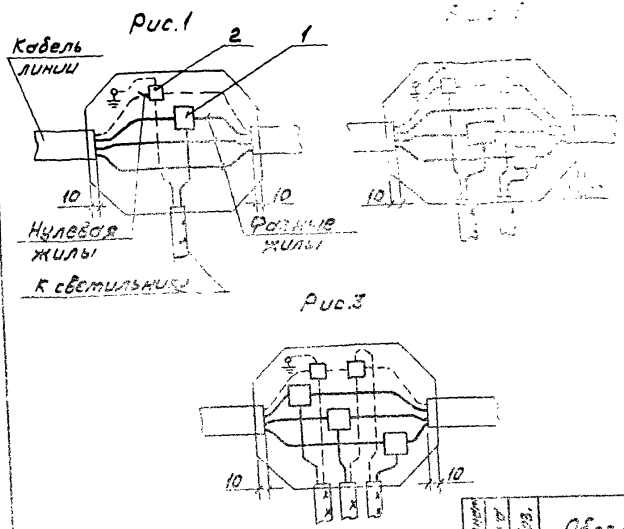 Рис.1
Кабель
линии
2
1
10
10
Нулевая
жилы
Фазные
жилы
К светильнику
10
Рис.3
10
10